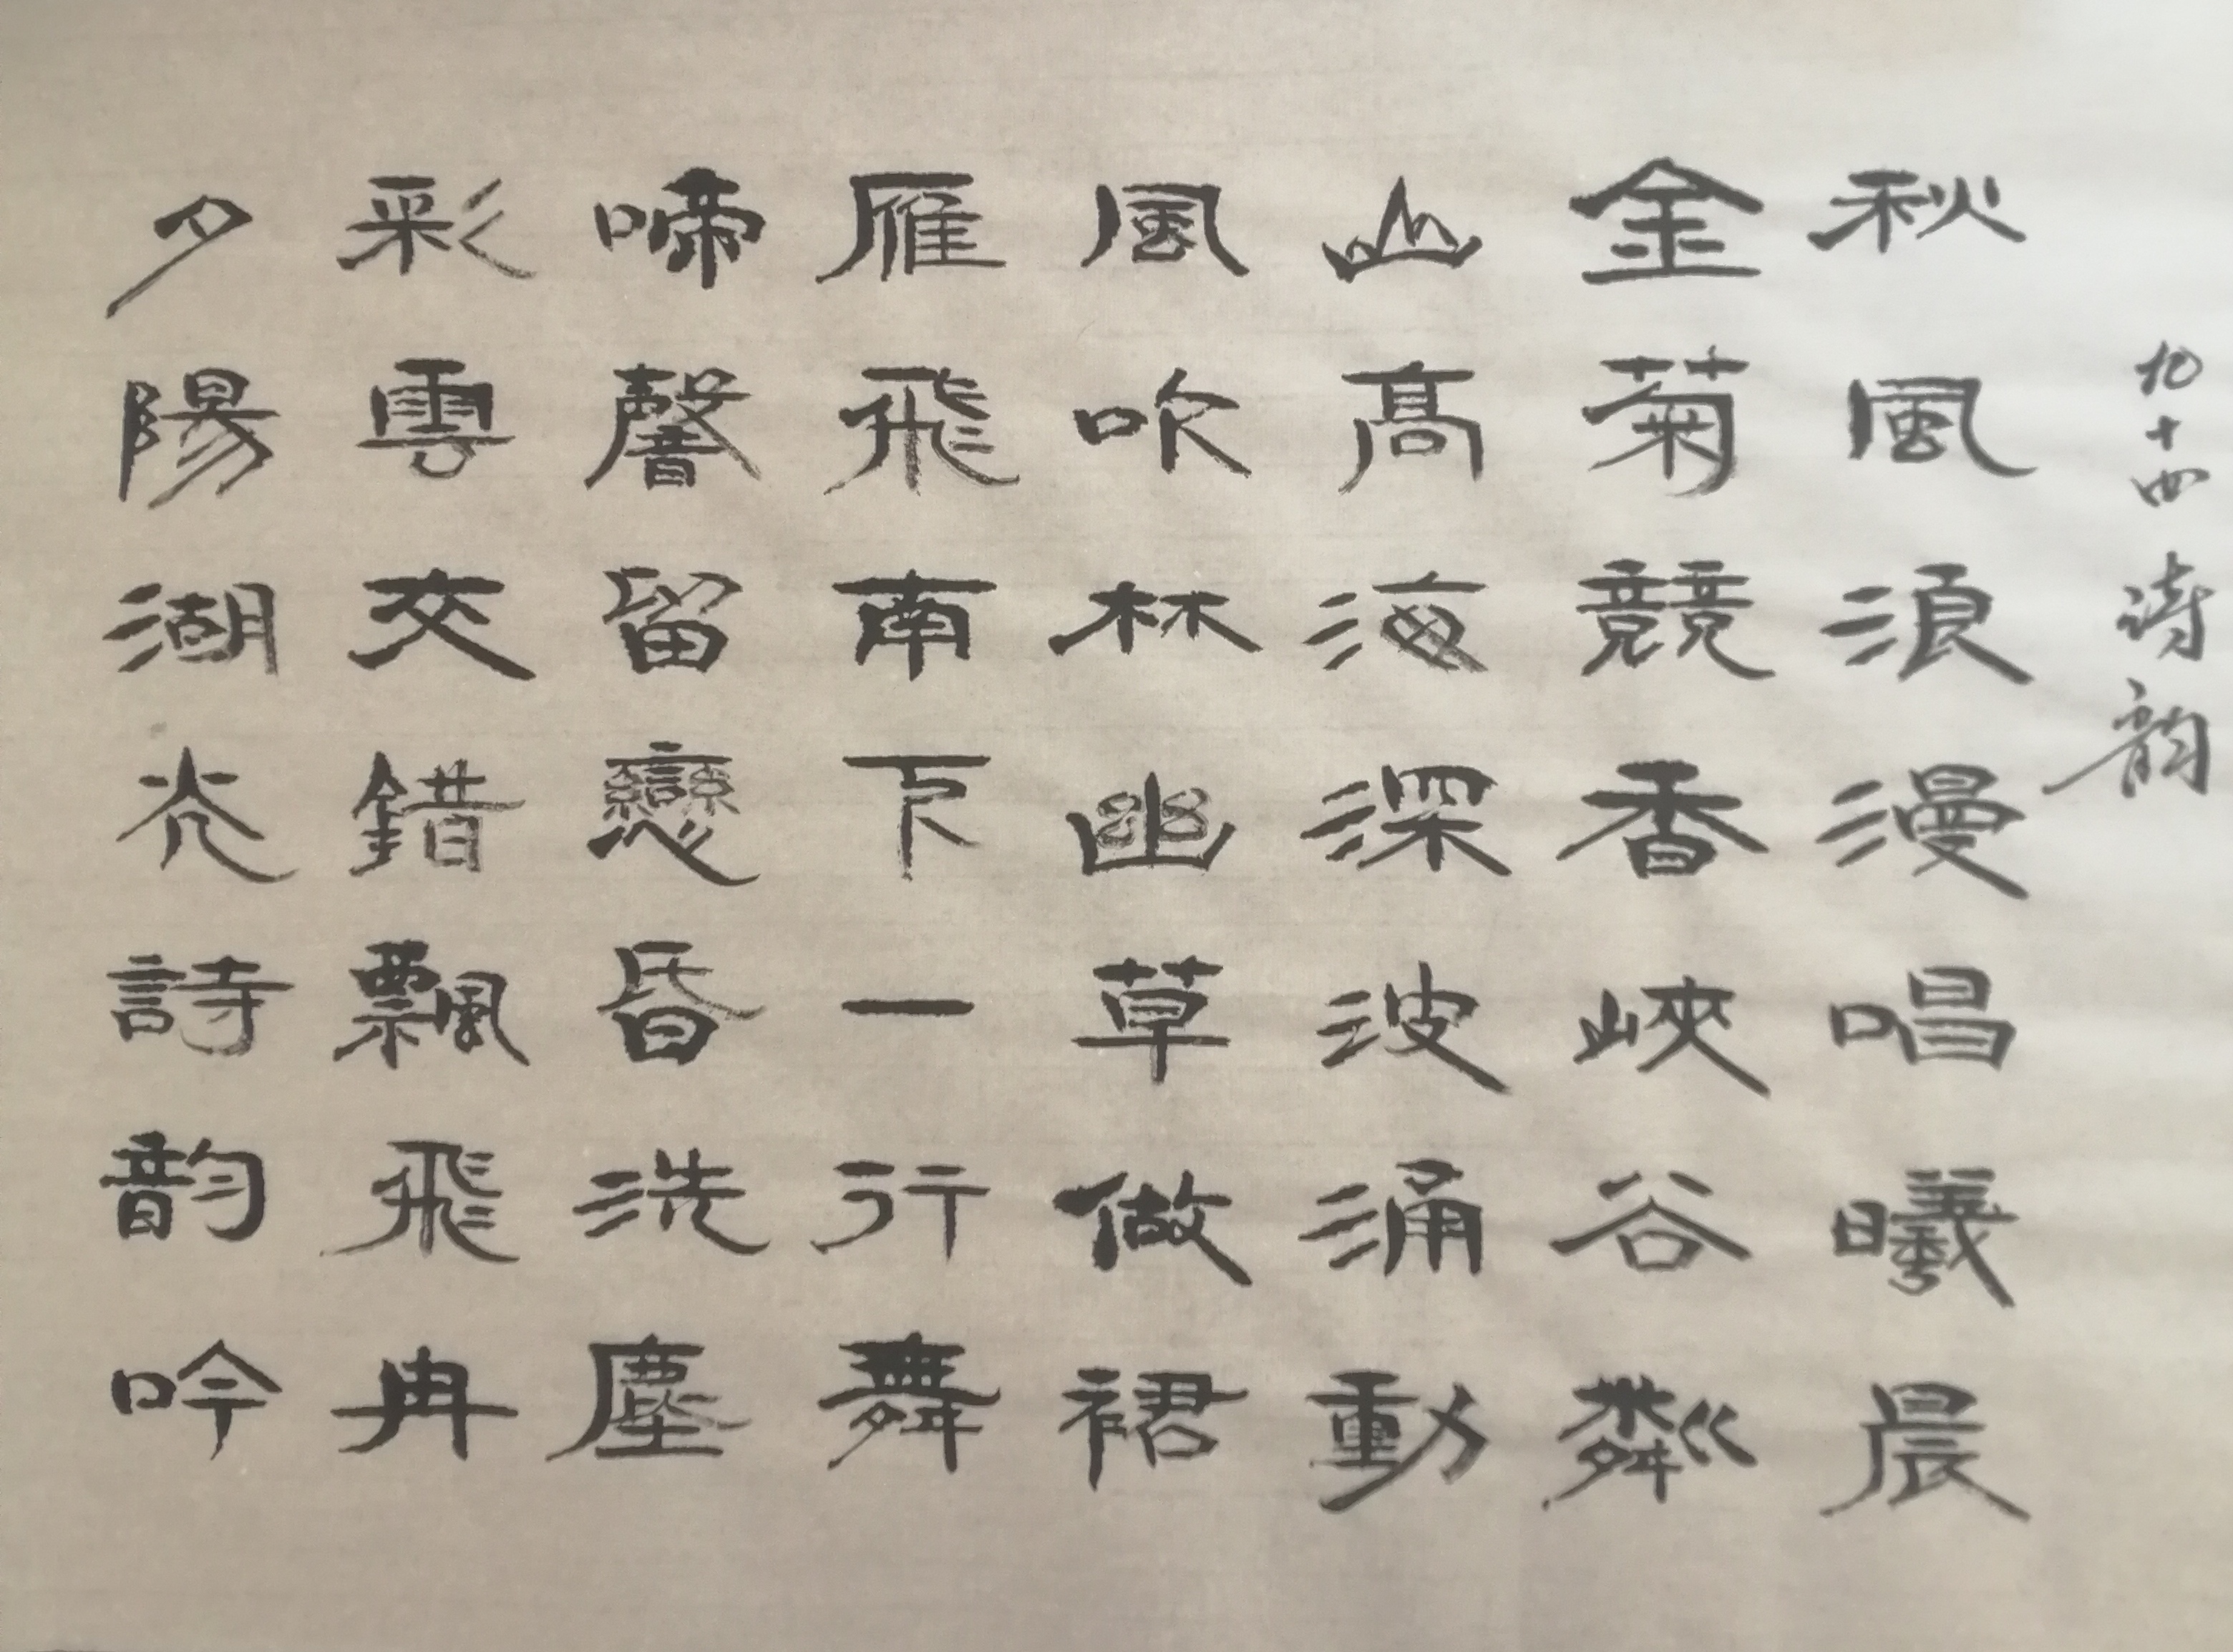 九十四 诗韵
秋風浪漫唱曦晨
金菊競香峽谷粼
山髙海深波涌動
風吹林幽草做裙
雁飛南下一行舞
啼聲留戀昏洗塵
彩雲交錯飄飛冉
夕陽湖光詩韵吟